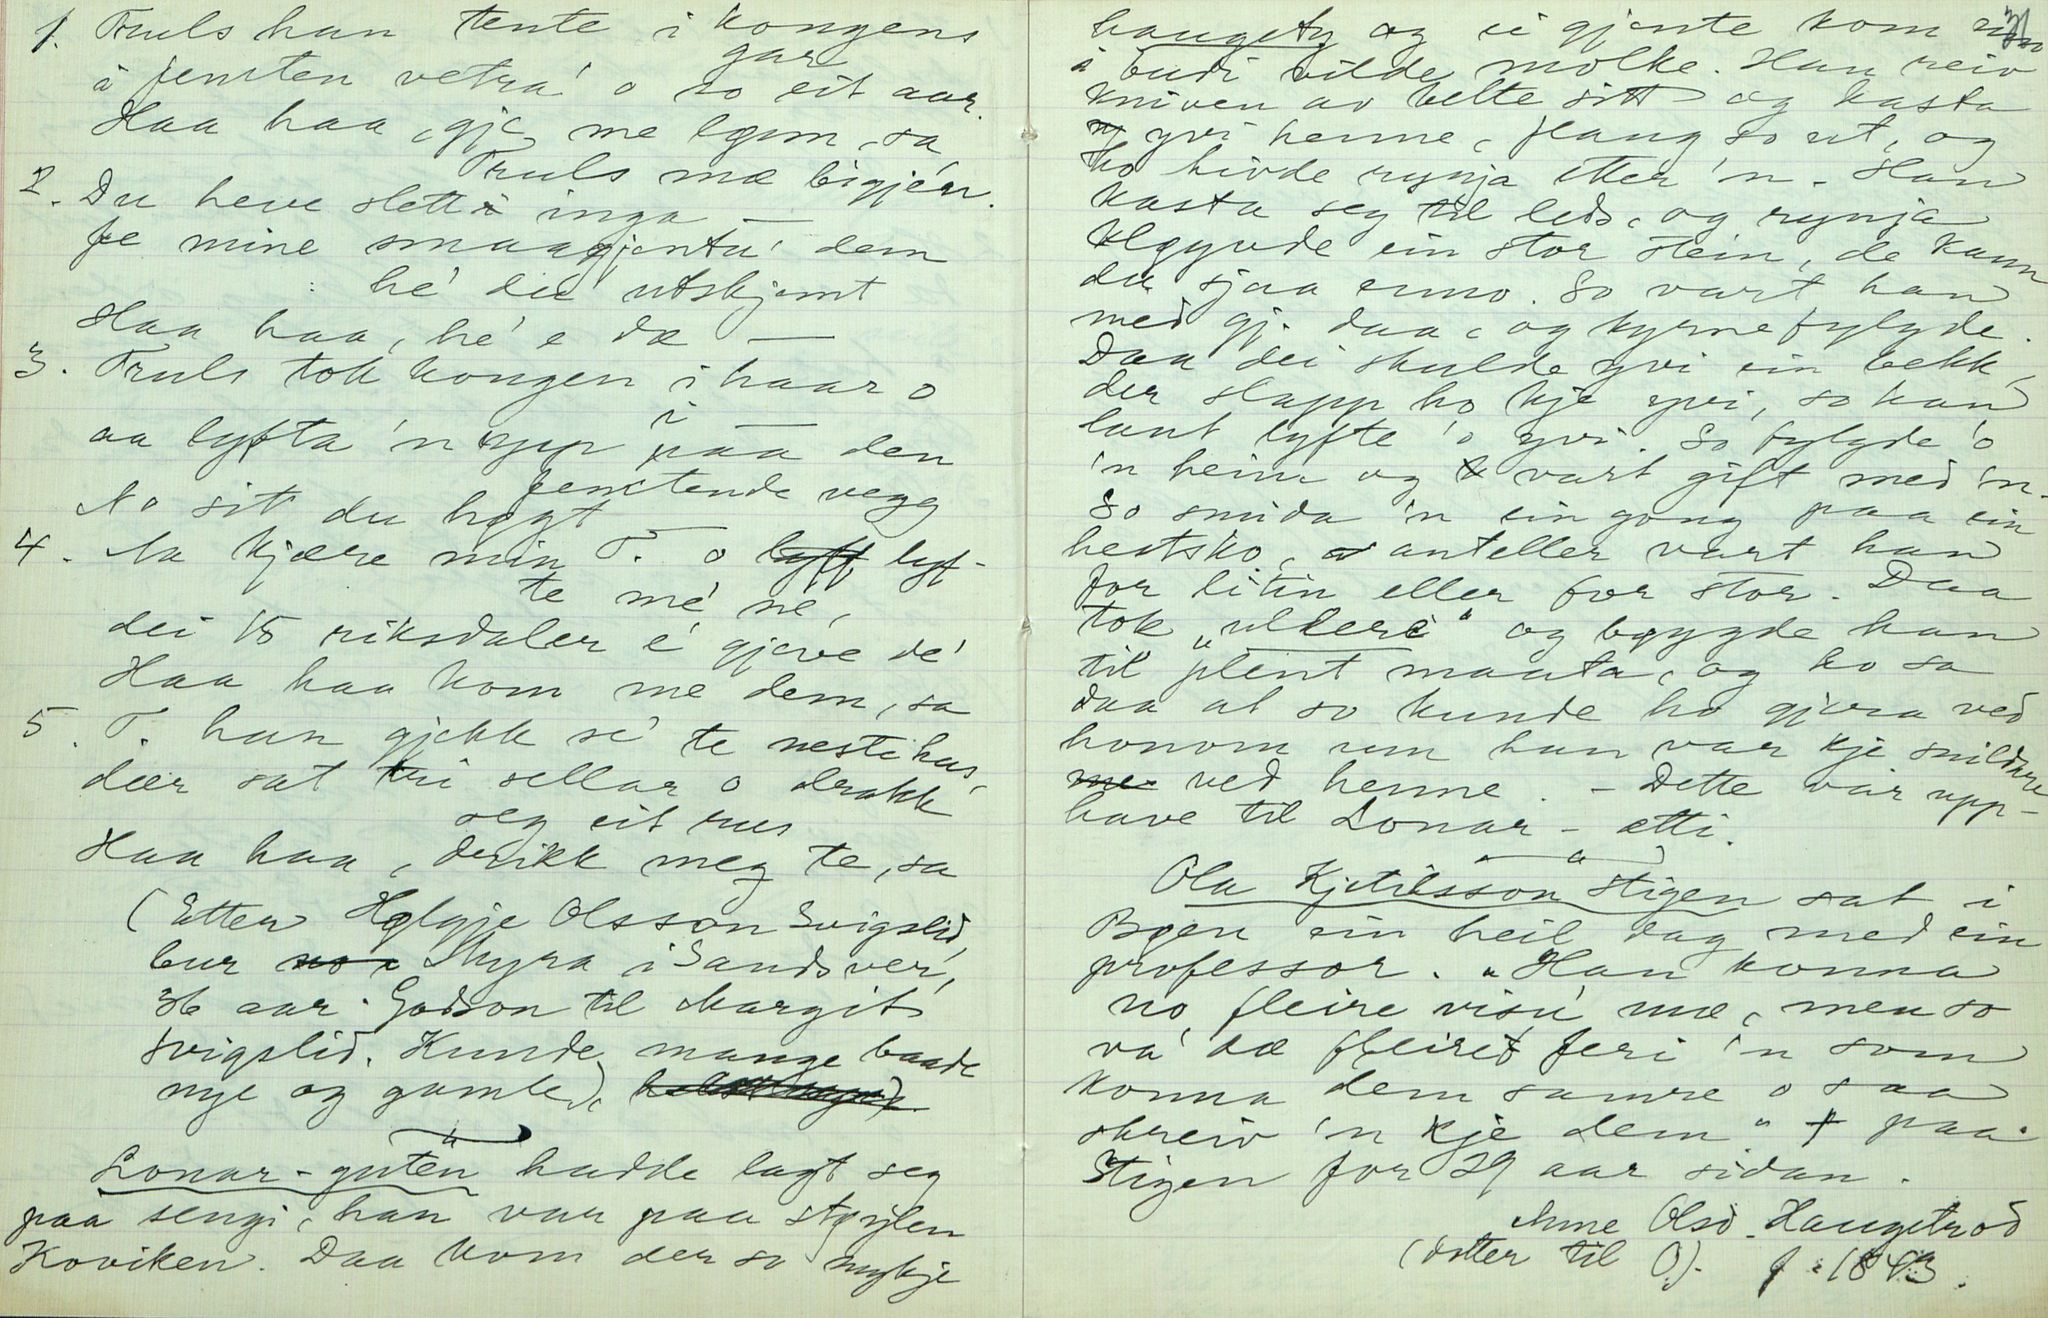 1. Truls han tente i kongens
gar
i femten vetra' o so eit aar.
Haa haa, gje me løœn, sa
Truls mæ bigjér.
2. Du heve slett inga —
fe mine smaagjentu' dem
he' du utskjemt
Haa haa, he' e dæ —
3. Truls tok kongen i haar o
i —
aa lyfta 'n upp paa den
femtende vegg
No sit du høgt —
4. Aa kjære min T. o lyft lyf-
te me' né,
dei 15 riksdaler e' gjeve de'
Haa haa kom me dem, sa
5. T. han gjekk se' te neste hus,
dær sat tri sellar o drakk
seg eit rus
Haa haa, drikk meg te, sa
(Etter Hølgje Olsson Svigslid,
bur no i Skyra i Sandsver,
36 aar. Godson til Margit
Svigslid. Kunde mange baade
nye og gamle),
Lonar-guten hadde lagt seg
paa sengi, han var paa støylen
Koviken. Daa kom der so mykje
haugety og ei gjente kom inn
i budi vilde mølke. Han reiv
kniven av belte sitt og kasta
yvi henne, flaug so ut, og
ho hivde rynja etter 'n. Han
kasta seg til leds, og rynja
kløyvde ein stor stein, de kann
du sjaa enno. So vart han
med gj. daa, og kyrne fylgde.
Daa dei skulde yvi ein bekk,
der slapp ho kje yvi, so han
laut lyfte 'o yvi. So fylgde 'o
'n heim og vart gift med 'n.
So smida 'n ein gong paa ein
hestsko, anteller vart han
for litin eller for stor. Daa
tok "ulderi" og bøygde han
til plent maata, og ho sa
daa at so kunde ho gjera ved
honom um han var kje snildare
me ved henne. - Dette var upp-
have til Lonar-ætti.
Ola Kjetilsson Stigen sat i
Bøen ein heil dag med ein
professor. "Han konna
no fleire visu' mæ, men so
va' dæ fleire feri 'n som
konna dem samre o saa
skreiv 'n kje dem" + paa
Stigen for 29 aar sidan.
Anne Olsd. Haugetrod
(dotter til O). f. 1843.